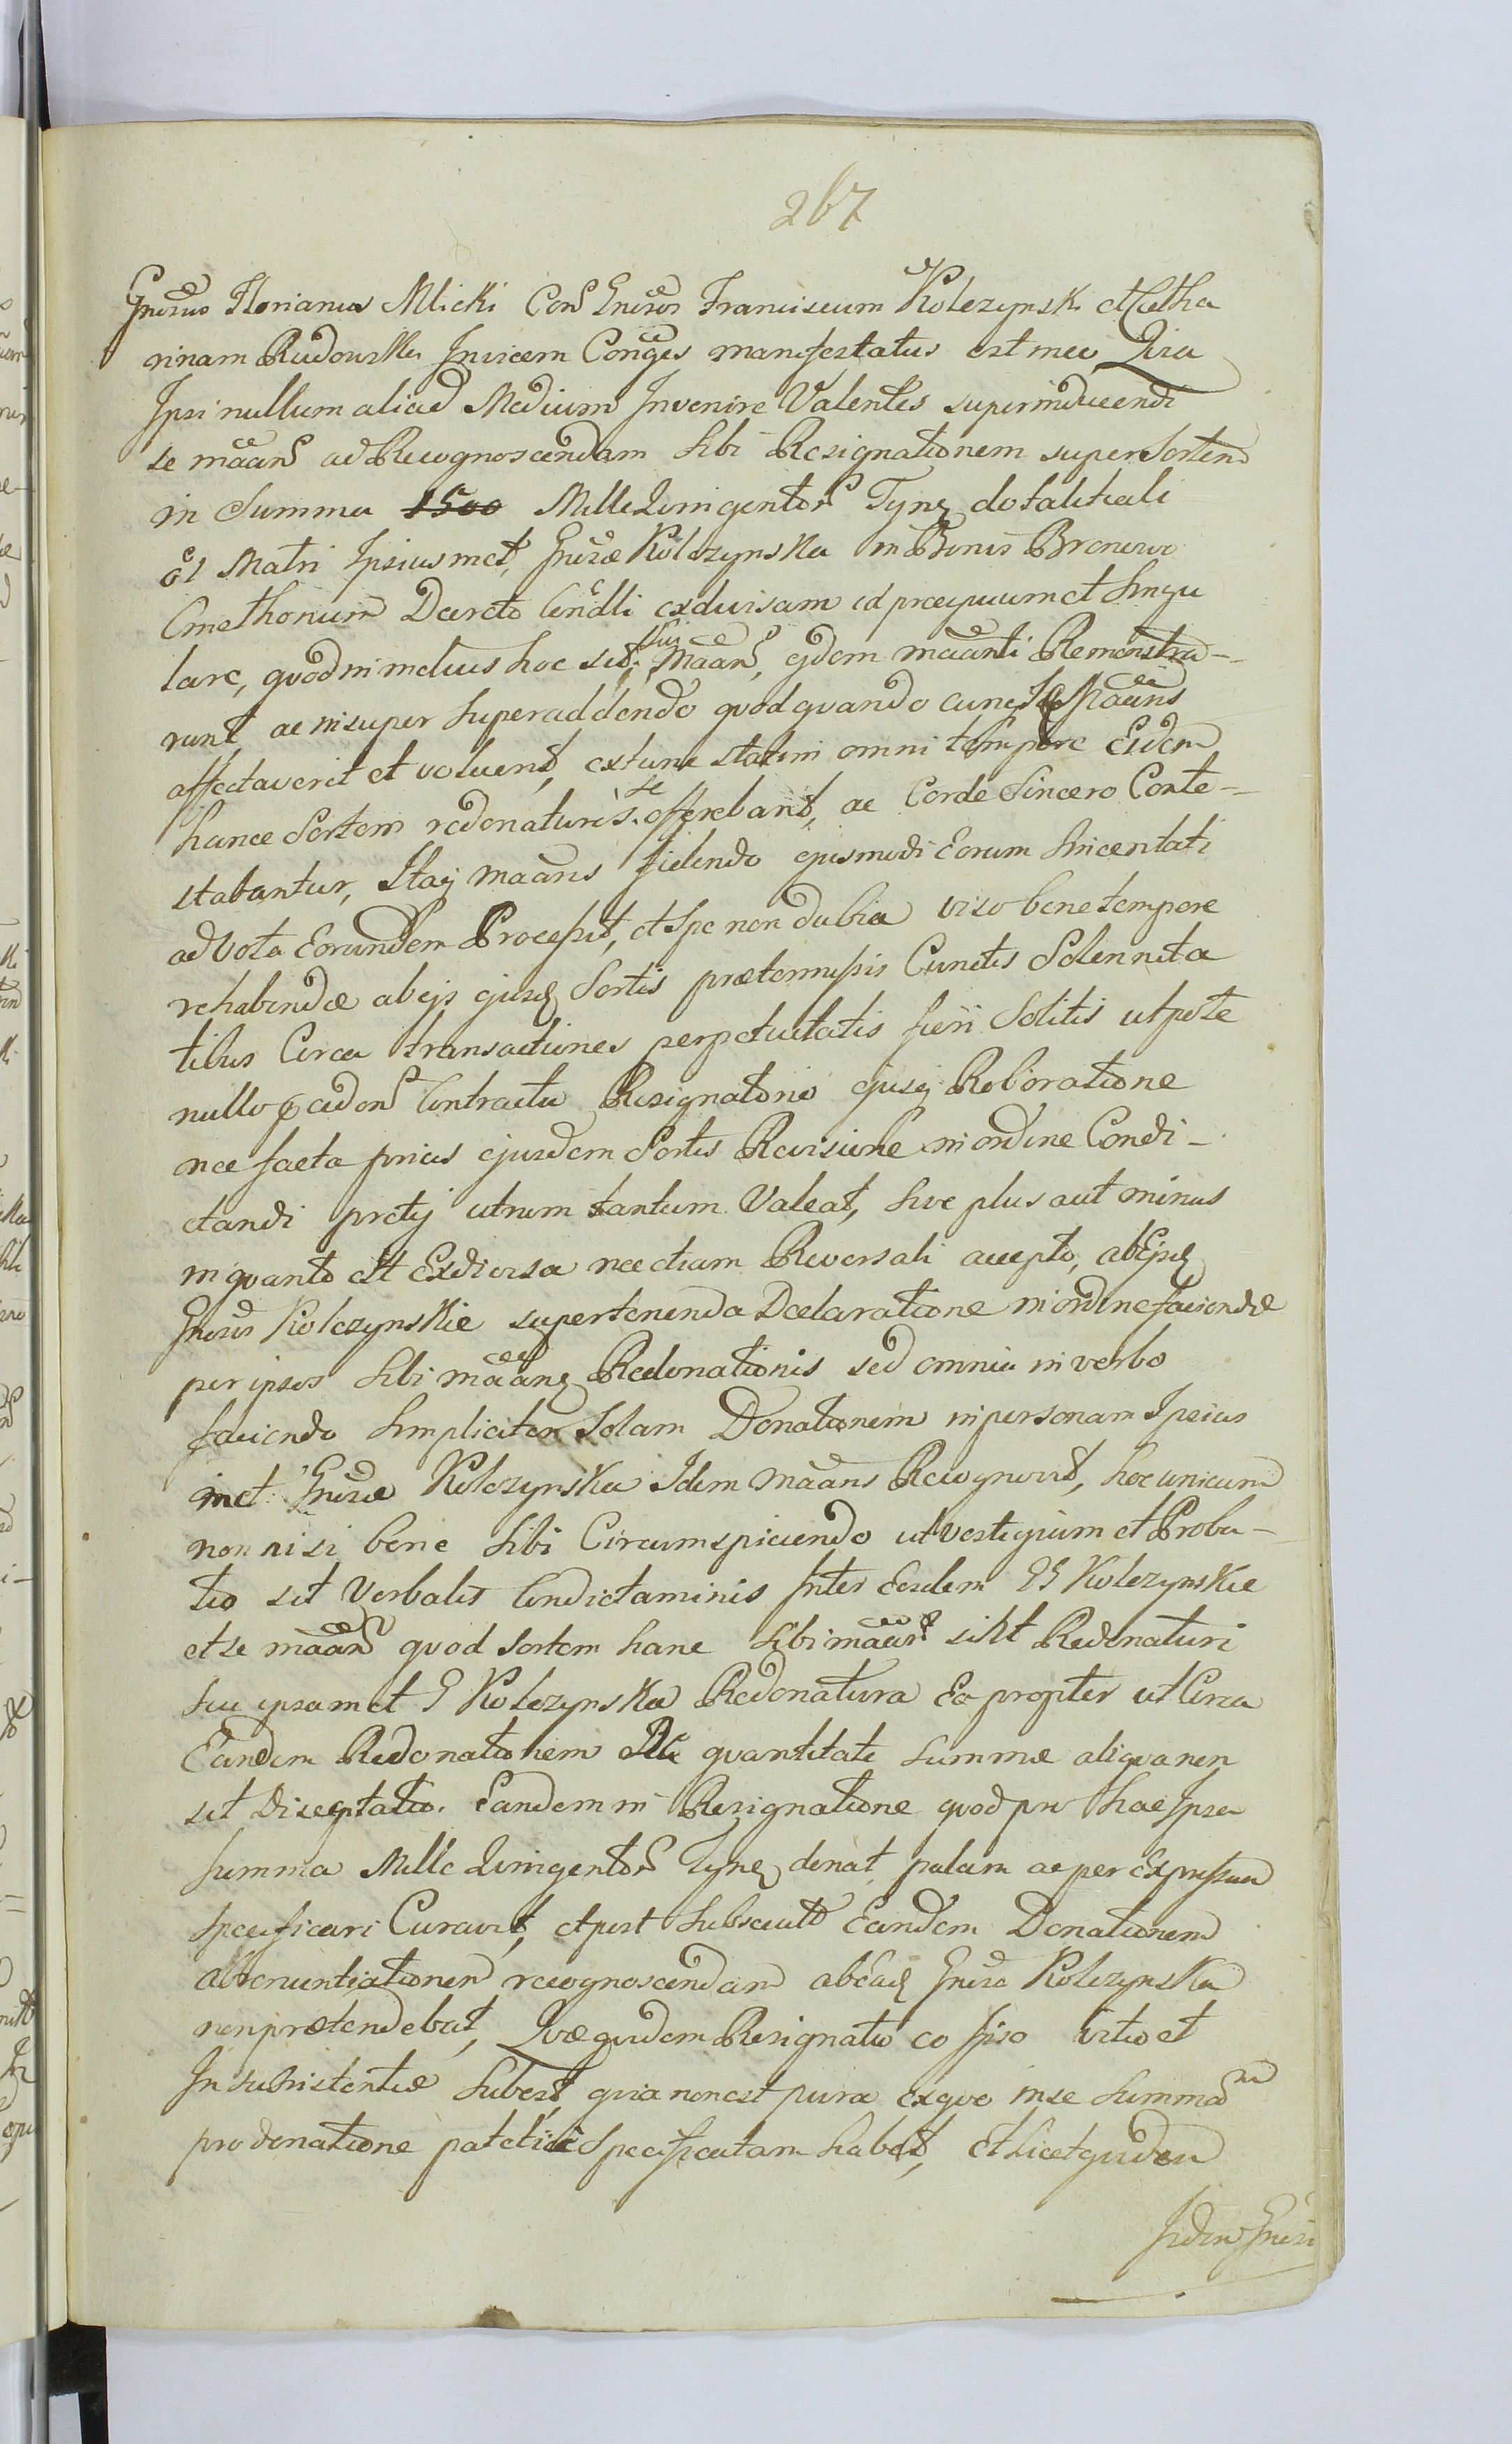 267
Gnosus Florianus Mlicki Con͠ Gnosos Franciscum Kolczynski et Catha
rinam Rudowska Invicem Conges manifestatus est mee Quia
Ipsi nullum aliud Medium Invenire Valentes superinducendi
se maan͠ ad Recognoscendam sibi Resignationem super Sortem
in Summa 1500 Mille Quingentor͠ Tynf dotaliteali
Matri Ipsiusmet, Gnosae Kolczynska in Bonis Bronowo
Cmethonum Decreto Condli exdivisam id praecipuum et singu
lare, quod in melius hoc Sui maan͠, ejdem maanti Remonstra-
runt, ac insuper Superaddendo quod quandocunq Maans
affectaverit et voluerit, extunc statim omni tempore Eidem
hance Sortem redonaturos se offerebant, ac Corde Sincero Conte-
stabantur, Itaq maans fidendo ejusmodi Eorum Sincentati
ad Vota Eorundem Processit, et Spe non dubia viso bene tempore
rehabendae ab ejs ejusd Sortis praetermissis Cunctis Solennita
tibus Circa transactiones perpetuitatis fieri Solitis utpote
nullo Contractu Resignatorio ejusq Roboratione
nec facta prius ejusdem Sortis Revisione in ordine Condi-
ctandi pretij utrum tantum Valeat, sive plus aut minus
in quanto est Exdivisa nec etiam Reversali accepto, ab Ejsd
Gnosis Kolczynskie super tenenda Declaratione in ordine faciendae
per ipsos sibi maan Redonationis sed omnia in verbo
faciendo Simpliciter Solam Donationem in personam Ipsius
met Gnosae Kolczynska Idem maans Recognovit, hoc unicum
non nisi bene sibi Circumspiciendo ut vestigium et Proba-
tio sit Verbalis Condictaminis Inter Eosdem GG Kolczynskie
et se maan͠ quod Sortem hanc sibi maan͠ Redonaturi
seu ipsamet G Kolczynska Redonatura Ea propter ut Circa
Eandem Redonationem quantitate Summae aliqua non
sit Disceptatio. Eandem in Resignatione quod pro hac Ipsa
Summa Mille Quingentor͠ Tynf donat, palam ac per Expressum
Specificari Curavit, et post Subsecuto Eandem Donationem
abrenuntiationem recognoscendam ab Ead Gnosa Kolczynska
non praetendebat, Quae quidem Resignatio eo Ipso vitio et
Insubsistentiae Subest, quia non est pura ex quo in se Summam
pro donatione patetice Specificatam habet, Et licet quidem
Iidem Gnosi